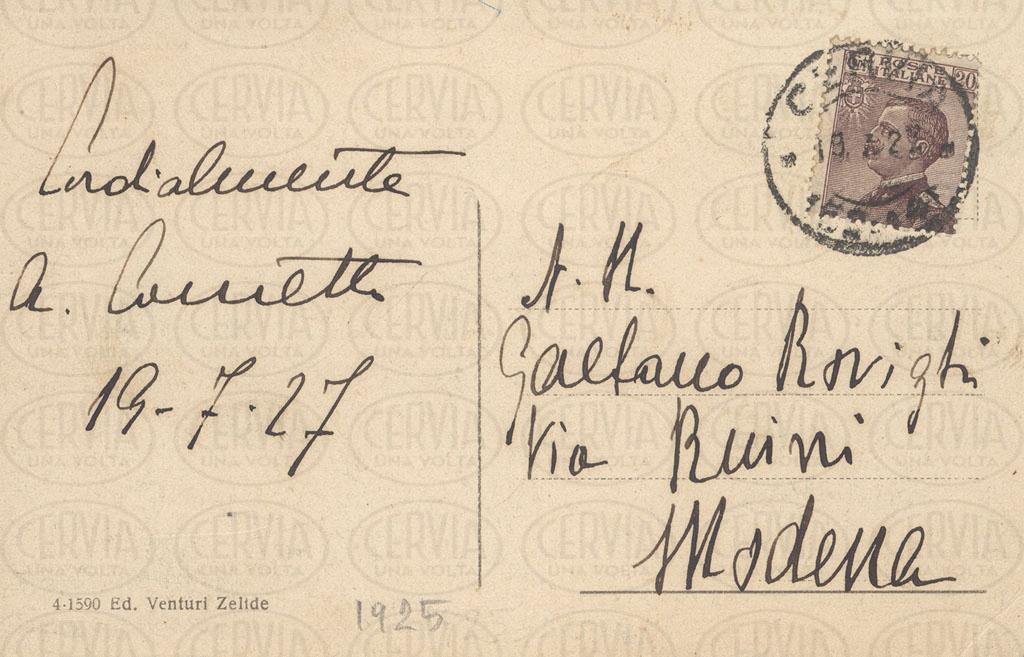 Cordialmente
A.
19-7-27
4-1590 Ed. Venturi Zelide
1925
POSTE
ITALIANE
20
N. H.
Gaetano Rovighi
Via Ruini
Modena
CERVIA
UNA VOLTA